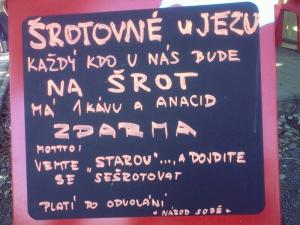 ŠROTOVNÉ U JEZU
KAŽDÝ KDO U NÁS BUDE
NA ŠROT
MÁ 1 KÁVU A ANACID
ZDARMA
MOTTO:
VEMTE "STAROU"..., A DOJDITE
SE "SEŠROTOVAT
PLATÍ DO ODVOLÁNÍ
"NÁROD SOBĚ"